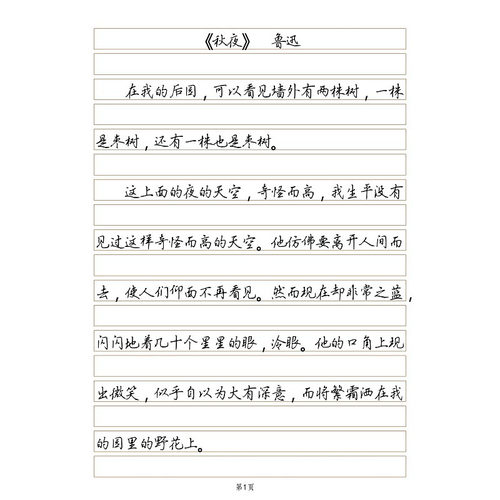 《秋夜》 鲁迅
在我的后园，可以看见墙外有两株树，一株
是枣树，还有一株也是枣树。
这上面的夜的天空，奇怪而高，我生平没有
见过这样奇怪而高的天空。他仿佛要离开人间而
去，使人们仰面不再看见。然而现在却非常之蓝，
闪闪地着几十个星星的眼，冷眼。他的口角上现
出微笑，似乎自以为大有深意，而将繁霜洒在我
的园里的野花上。
第1页